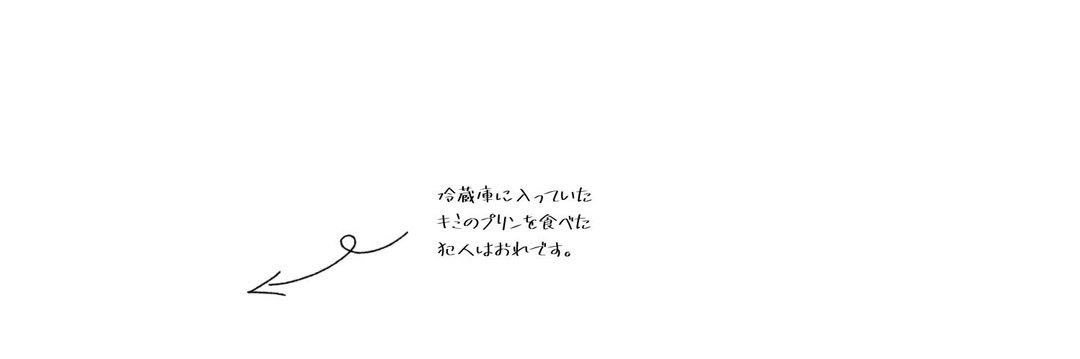 冷蔵庫に入っていた
キミのプリンを食べた
犯人はおれです。